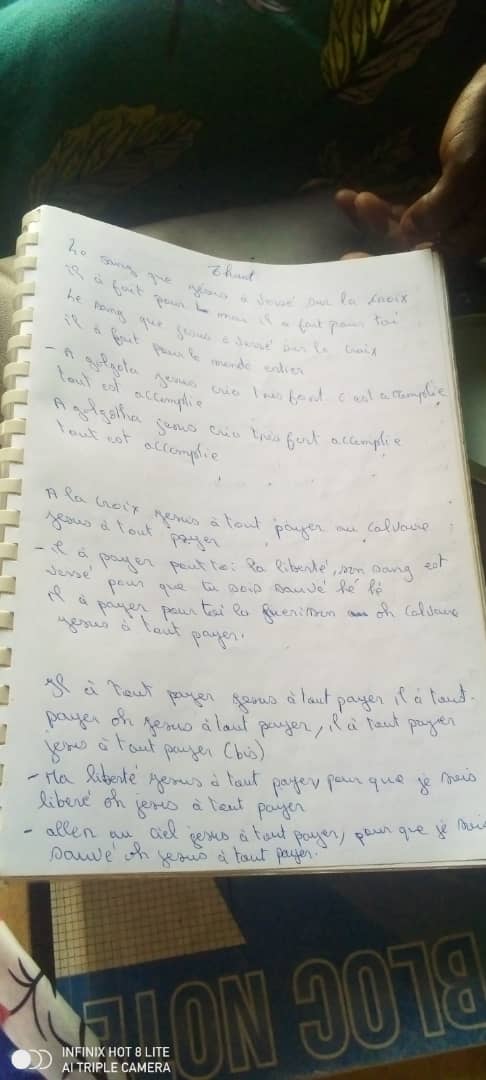 Chant
Le sang que jesus à versé sur la croix
il à fait pour moi il a fait pour toi
Le sang que jesus à versé sur la croix
il à fait pour le monde entier
- A golgota jesus cria très fort c est accomplie
tout est accomplie
A golgotha jesus cria très fort accomplie
tout est accomplie
A la croix jesus à tout payer au calvaire
jesus à tout payer
- il à payer pour toi la liberté, son sang est
versé pour que tu sois sauvé hé hé
il à payer pour toi la guerison oh calvaire
jesus à tout payer.
Il à tout payer jesus à tout payer il à tout
payer oh jesus à tout payer, il à tout payer
jesus à tout payer (bis)
- Ma liberté jesus à tout payer, pour que je sois
liberé oh jesus à tout payer
- allen au ciel jesus à tout payer, pour que je sois
sauvé oh jesus à tout payer.
BLOC NOTE
INFINIX HOT 8 LITE
AI TRIPLE CAMERA